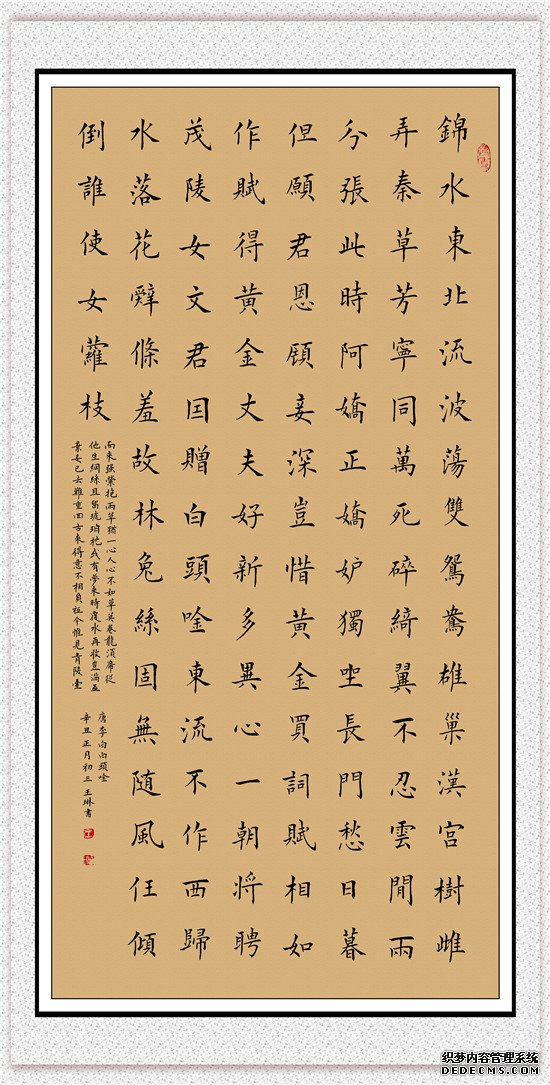 錦水東北流波蕩雙鴛鴦雄巢漢宮樹雌
弄秦草芳寧同萬死碎綺翼不忍雲間兩
分張此時阿嬌正嬌妒獨坐長門愁日暮
但願君恩顧妾深豈惜黃金買詞賦相如
作賦得黃金丈夫好新多異心一朝將聘
茂陵女文君因贈白頭唫東流不作西歸
水落花辭條羞故林兔絲固無隨風任傾
倒誰使女蘿枝
而來强縈抱兩草猶一心人心不如草莫卷龍須席從
他生網絲且留琥珀枕或有夢來時覆水再收豈滿盃
棄妾已去難重回古來得意不相負祗今惟見青陵臺
唐李白白頭唫
辛丑正月初三王琳書
织梦内容管理系统
DEDECMS.COM